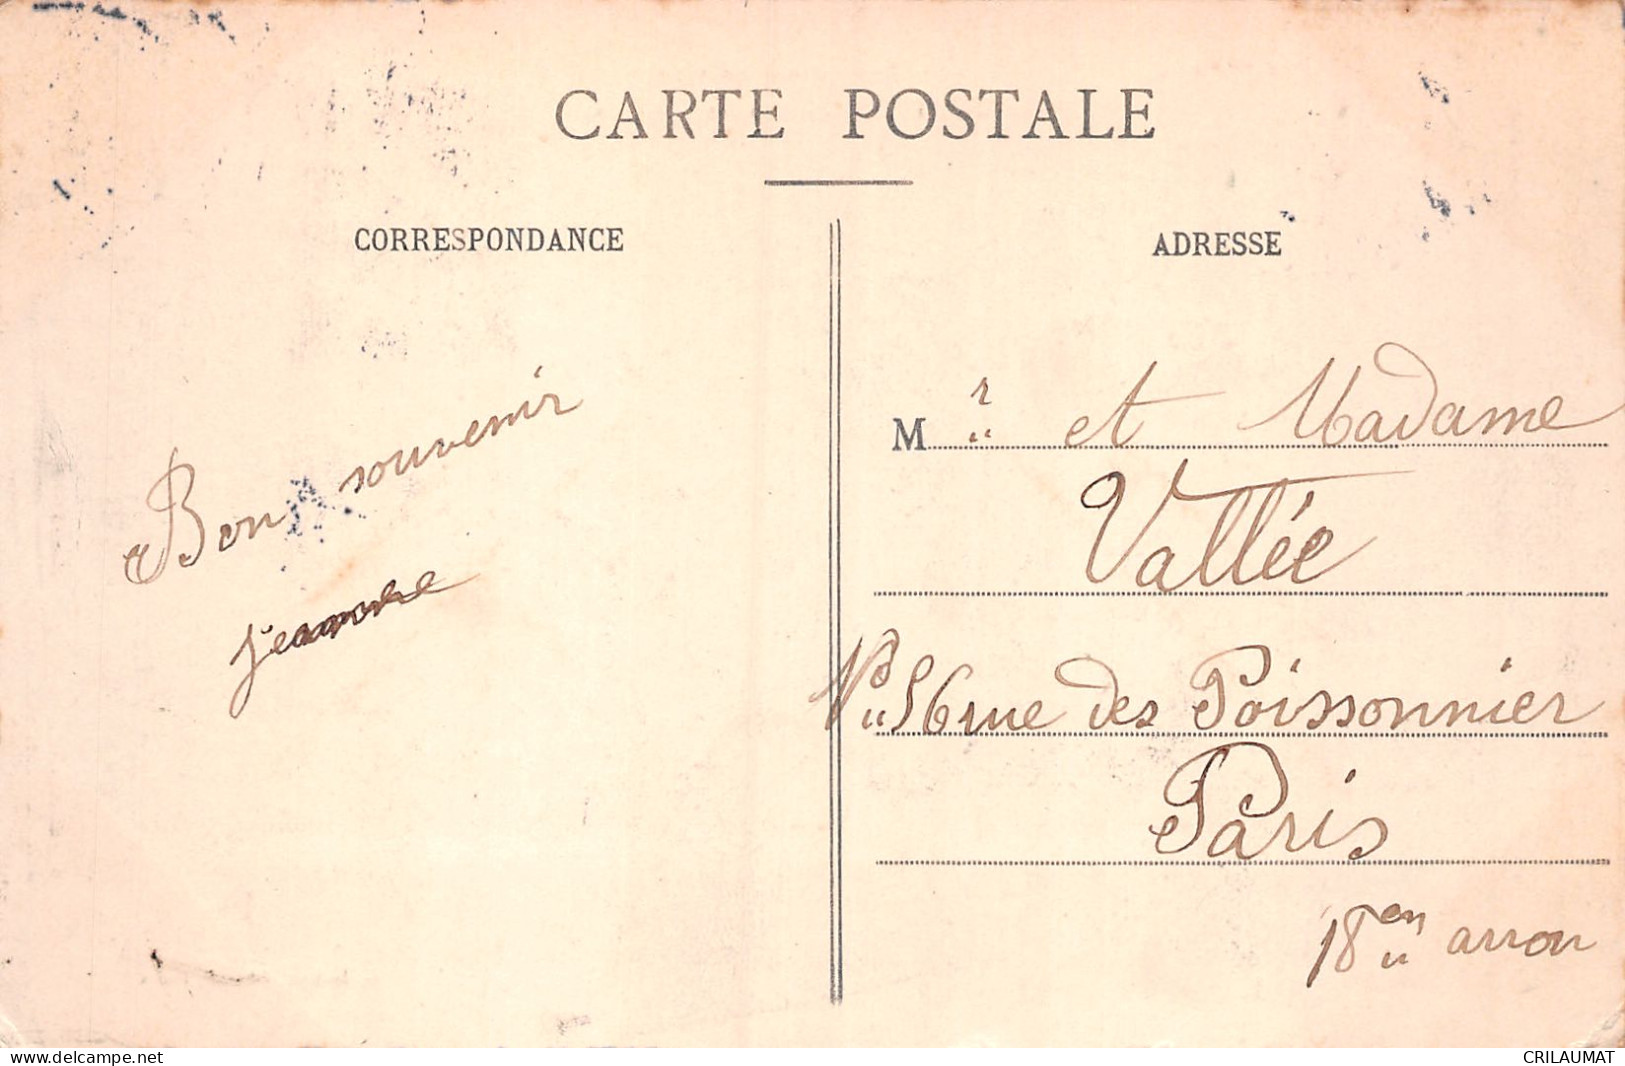 CARTE POSTALE
CORRESPONDANCE
ADRESSE
Bon souvenir
Jeanne
M r et Madame
Vallée
No 56 rue des Poissonnier
Paris
18 en arron
delcampe.net
CRILAUMAT